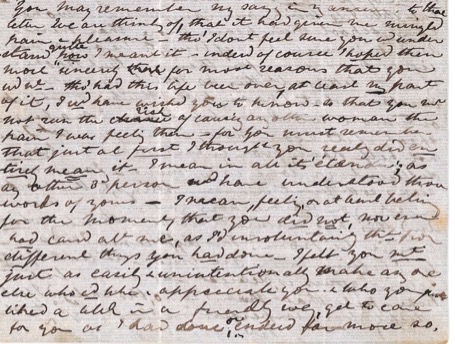 You may remember my saying in answer to that
letter we are thinking of, that it had given me mingled
pain & pleasure – tho' I don't feel sure you wd under
stand quite how I meant it – indeed of course I hoped then
most sincerely for most reasons that you
wd – tho' had this life been over, at least my part
of it, I wd have wished you to know – so that you wd
not run the chance of causing another woman the
pain I was feeling then – for you must remember
that just at first I thought you really did en
tirely mean it – I mean in all its extent; as
any other 3d person wd have understood those
words of yours – I mean, feeling, or at least believing
for the moment, that you did not, nor ever
had cared abt me, as I'd involuntarily tht from
different things you had done. I felt you mt
just as easily & unintentionally make any one
else who cd appreciate you & who you
liked a little in a friendly way, get to care
for you as I had done, or indeed far more so.